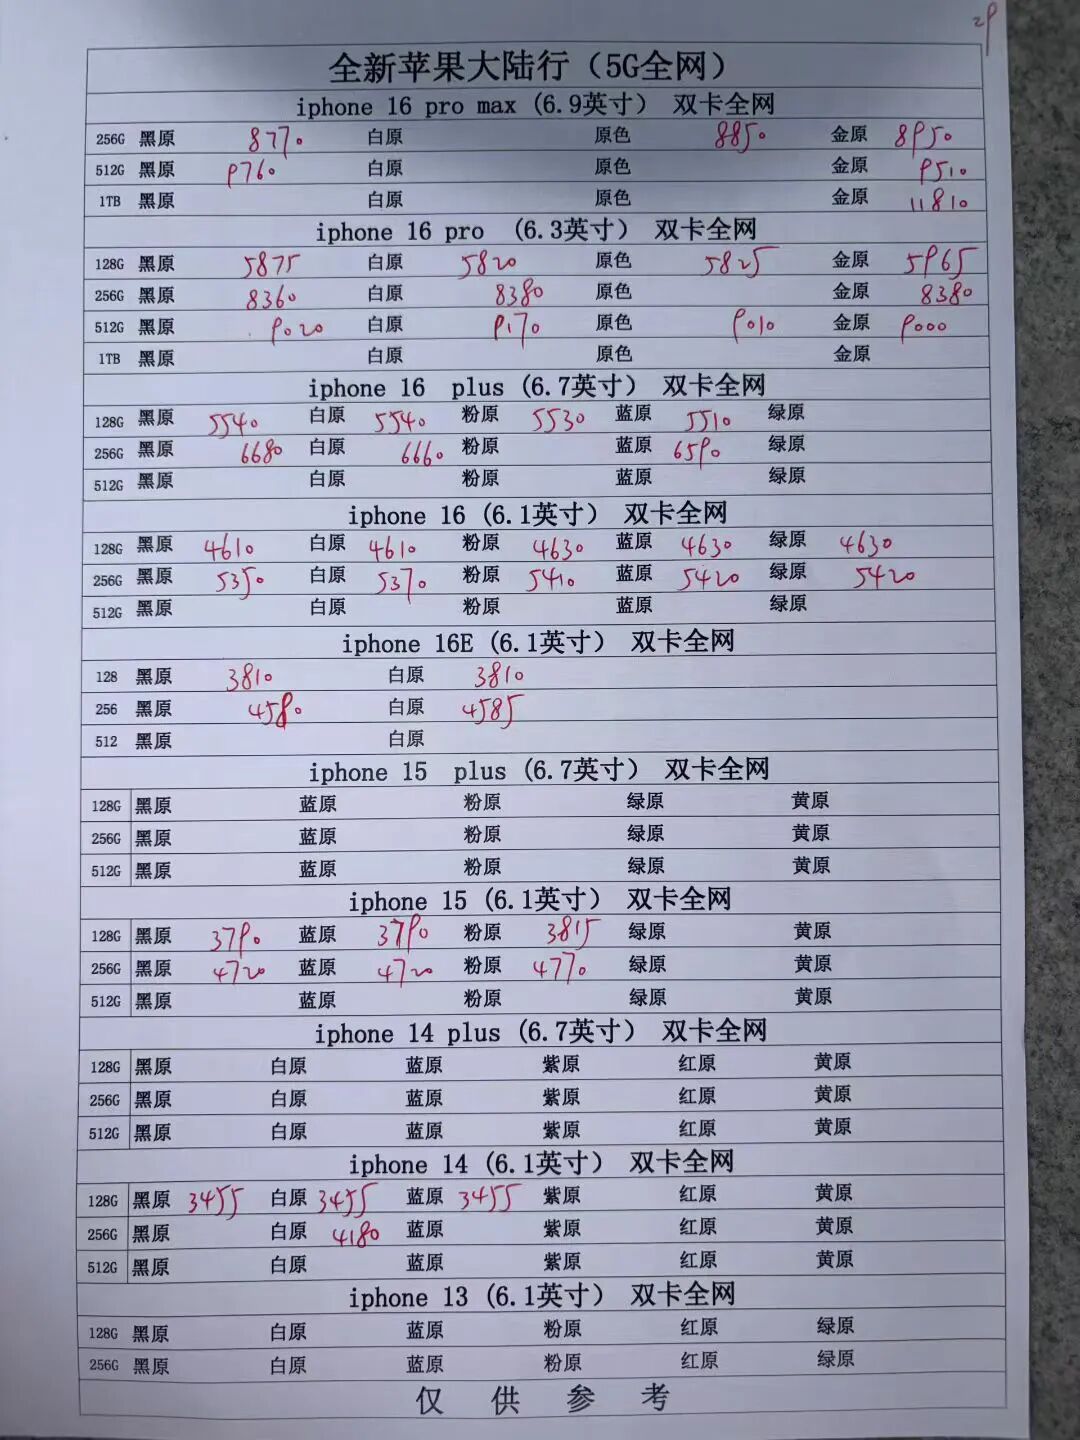 29
全新苹果大陆行（5G全网）
iphone 16 pro max (6.9英寸） 双卡全网
256G 黑原 8770 白原 原色 8850 金原 8950
512G 黑原 9760 白原 原色 金原 9510
1TB 黑原 白原 原色 金原 11810
iphone 16 pro （6.3英寸） 双卡全网
128G 黑原 5875 白原 5820 原色 5825 金原 5965
256G 黑原 8360 白原 8380 原色 金原 8380
512G 黑原 9020 白原 9170 原色 9010 金原 9000
1TB 黑原 白原 原色 金原
iphone 16 plus (6.7英寸） 双卡全网
128G 黑原 5540 白原 5540 粉原 5530 蓝原 5510 绿原
256G 黑原 6680 白原 6660 粉原 蓝原 6590 绿原
512G 黑原 白原 粉原 蓝原 绿原
iphone 16 (6.1英寸） 双卡全网
128G 黑原 4610 白原 4610 粉原 4630 蓝原 4630 绿原 4630
256G 黑原 5350 白原 5370 粉原 5410 蓝原 5420 绿原 5420
512G 黑原 白原 粉原 蓝原 绿原
iphone 16E (6.1英寸） 双卡全网
128 黑原 3810 白原 3810
256 黑原 4580 白原 4585
512 黑原 白原
iphone 15 plus (6.7英寸） 双卡全网
128G 黑原 蓝原 粉原 绿原 黄原
256G 黑原 蓝原 粉原 绿原 黄原
512G 黑原 蓝原 粉原 绿原 黄原
iphone 15 (6.1英寸） 双卡全网
128G 黑原 3790 蓝原 3790 粉原 3815 绿原 黄原
256G 黑原 4720 蓝原 4720 粉原 4770 绿原 黄原
512G 黑原 蓝原 粉原 绿原 黄原
iphone 14 plus (6.7英寸） 双卡全网
128G 黑原 白原 蓝原 紫原 红原 黄原
256G 黑原 白原 蓝原 紫原 红原 黄原
512G 黑原 白原 蓝原 紫原 红原 黄原
iphone 14 (6.1英寸） 双卡全网
128G 黑原 3455 白原 3455 蓝原 3455 紫原 红原 黄原
256G 黑原 白原 4180 蓝原 紫原 红原 黄原
512G 黑原 白原 蓝原 紫原 红原 黄原
iphone 13 (6.1英寸） 双卡全网
128G 黑原 白原 蓝原 粉原 红原 绿原
256G 黑原 白原 蓝原 粉原 红原 绿原
仅供参考